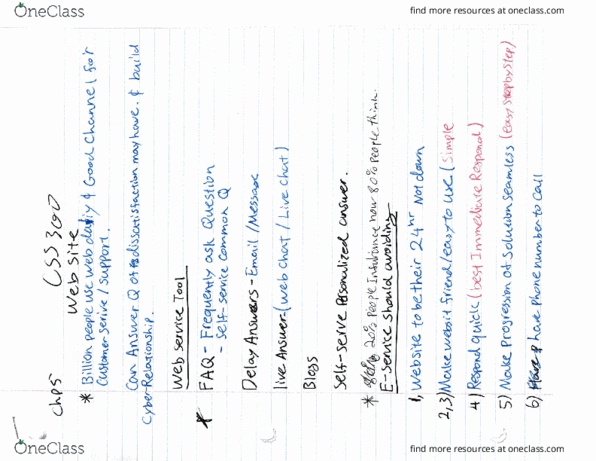 OneClass
find more resources at oneclass.com
Chp5 CSS 360
Web site
* Billion people use web daily & Good Channel for
Customer Servie / Support.
Can Answer Q of dissatisfaction may have. & build
Cyber Relationship.
Web service Tool
* FAQ - Frequently ask Question
- Self-service common Q
Delay Answers - Email / Message
live Answer (web chat / Live chat)
Blogs
Self-serve Personalized answer.
* 20% people Inbalance how 80% people think.
E-service should avoiding
1, Website to be their 24hr Not down
2,3) Make websit friend/easy to use (Simple
4) Respond quick (best Immediate Respond)
5) Make Progression at Solution seamless (easy step by step)
6) have Phone number to call
OneClass
find more resources at oneclass.com